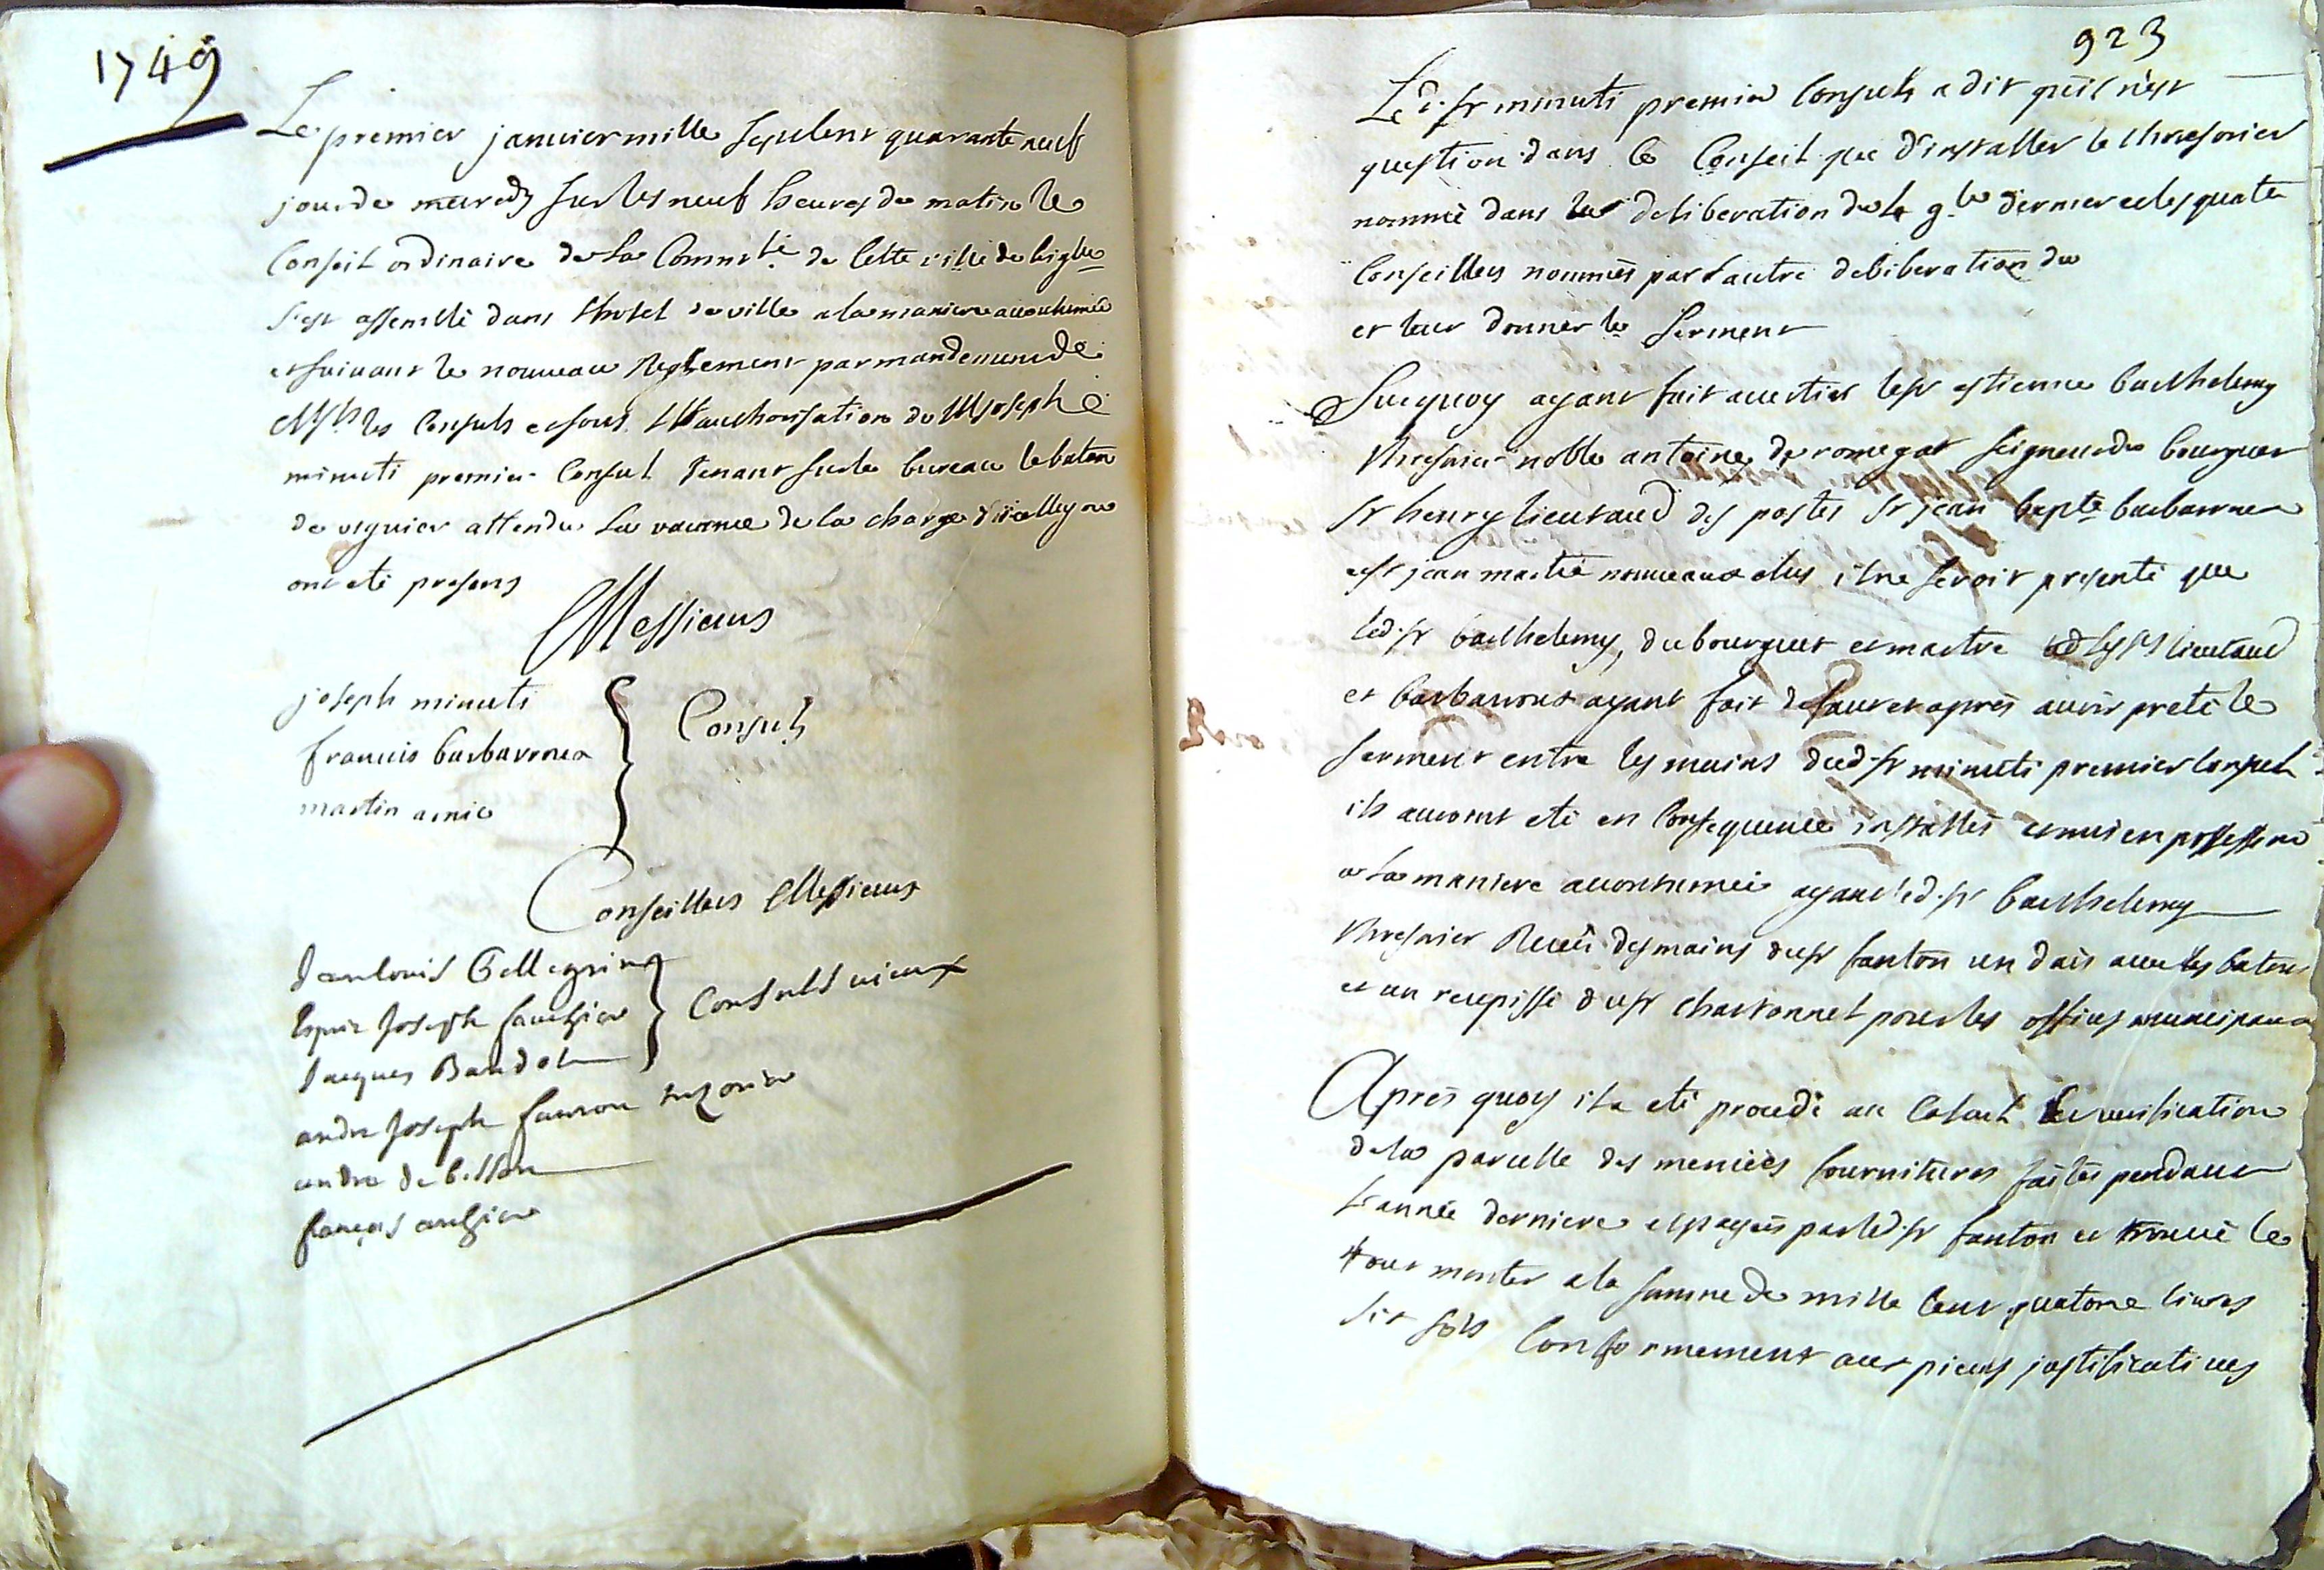 1749
Le premier janvier mille sept cent quarante neuf
jour de mercredy sur les neuf heures du matin le
Conseil ordinaire de la Commté de cette ville de
s'est assemblé dans l'hotel de ville a la maniere accoutumée
et suivant le nouveau Reglement par mandement de
Mrs les Consuls et sous l'authorisation de M joseph
minuti premier Consul tenant sur le bureau le baton
de viguier attendu la vacance de la charge d'icelluy ou
ont eté presens
Messieurs
joseph minuti
francois barbarroux
martin amic
Consuls
Conseillers Messieurs
Jean louis Pellegrin
Joseph
Jacques Baudol
Consuls vieux
andre Joseph fanton trezorier
andre de
françois
923
Led. sr minuti premier Consul a dit qu'il n'est
question dans le Conseil que d'installer le thresorier
nommé dans la deliberation du dernier et les quatre
Conseillers nommés par l'autre deliberation du
et leur donner le serment
Sur quoy ayant fait avertir le sr estienne barthelemy
thresorier noble antoine de romegat seigneur du bourguet
sr henry lieutaud des postes sr jean bapte barbarroux
et sr jean martre nouveaux elus il ne seroit presenté que
led. sr barthelemy, du bourguet et martre lesd srs lieutaud
et barbarroux ayant fait defaut et apres avoir preté le
serment entre les mains dud. sr minuti premier Consul
ils auront eté en Consequence installés et mis en possession
a la maniere accoutumée ayant led. sr barthelemy
thresorier Receu des mains du sr fanton un dais avec les batons
et un recepissé du sr chardonnet pour les offices municipaux
Apres quoy il a eté procedé au Calcul et verification
de la parcelle des menües fournitures faites pendant
l'année derniere et payées par led. sr fanton et trouvé le
tout monter a la somme de mille cent quatorze livres
sols Conformement aux pieces justificatives